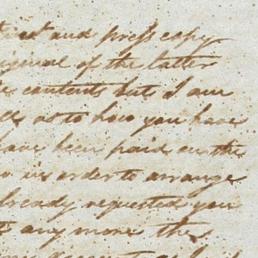 and press copy
original of the letter
contents but I am
as to how you have
have been paid on the
in order to arrange
already requested you
any more the